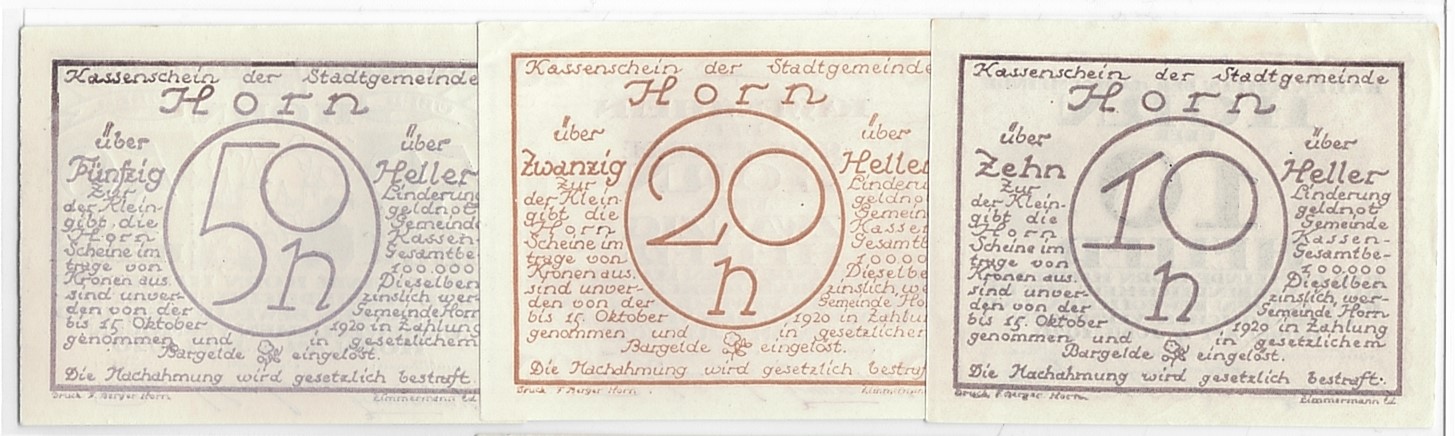 Kassenschein der Stadtgemeinde
Horn
über über
Fünfzig 50 h Heller
Zur Linderung
der Klein- geldnot
gibt die Gemeinde
Horn Kassen-
Scheine im Gesamtbe-
trage von 100.000
Kronen aus. Dieselben
sind unver- zinslich, wer-
den von der Gemeinde Horn
bis 15. Oktober 1920 in Zahlung
genommen und in gesetzlichem
Bargelde eingelöst.
Die Nachahmung wird gesetzlich bestraft.
Druck F. Berger Horn Zimmermann
Kassenschein der Stadtgemeinde
Horn
über über
Zwanzig 20 h Heller
Zur Linderu
der Klein- geldno
gibt die Gemein
Horn Kassen
Scheine im Gesamtb
trage von 100.00
Kronen aus. Dieselbe
sind unver- zinslich, w
den von der Gemeinde Ho
bis 15. Oktober 1920 in Zahlun
genommen und in gesetzlicher
Bargelde eingelöst.
Die Nachahmung wird gesetzlich bestraf
Druck F. Berger Horn Zimmermann
Kassenschein der Stadtgemeinde
Horn
über über
Zehn 10 h Heller
Zur Linderung
der Klein- geldnot
gibt die Gemeinde
Horn Kassen-
Scheine im Gesamtbe-
trage von 100.000
Kronen aus. Dieselben
sind unver- zinslich, wer-
den von der Gemeinde Horn
bis 15. Oktober 1920 in Zahlung
genommen und in gesetzlichem
Bargelde eingelöst.
Die Nachahmung wird gesetzlich bestraft.
Druck F. Berger Horn Zimmermann